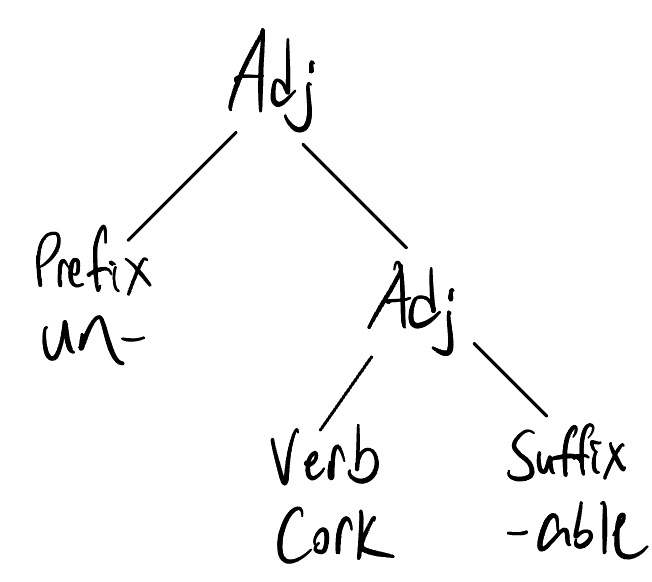 Adj
Prefix
un-
Adj
Verb
Cork
Suffix
-able